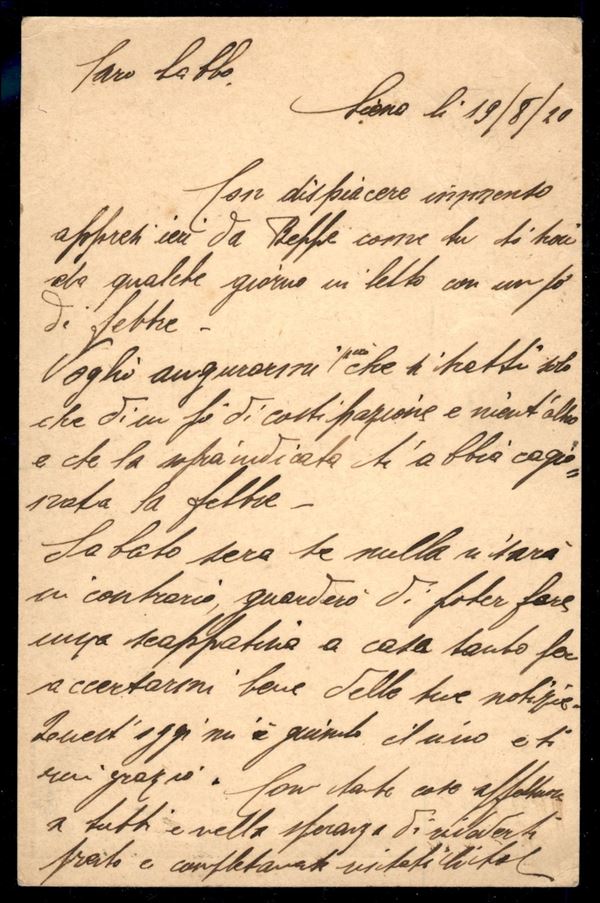 Caro babbo.
Siena li 19/8/20
Con dispiacere immenso
appresi ieri da Beppe come tu ti trovi
da qualche giorno in letto con un pò
di febbre -
Voglio augurarmi però che si tratti solo
che di un pò di costipazione e nient'altro
e che la sopraindicata ti abbia cagio=
nata la febbre -
Sabato sera se nulla vi sarà
in contrario, guarderò di poter fare
una scappatina a casa tanto per
accertarmi bene delle tue notizie.
Quest'oggi mi è giunto il vino e ti
ringrazio. Con tante cose affettuose
a tutti e nella speranza di vederti
presto e completamente